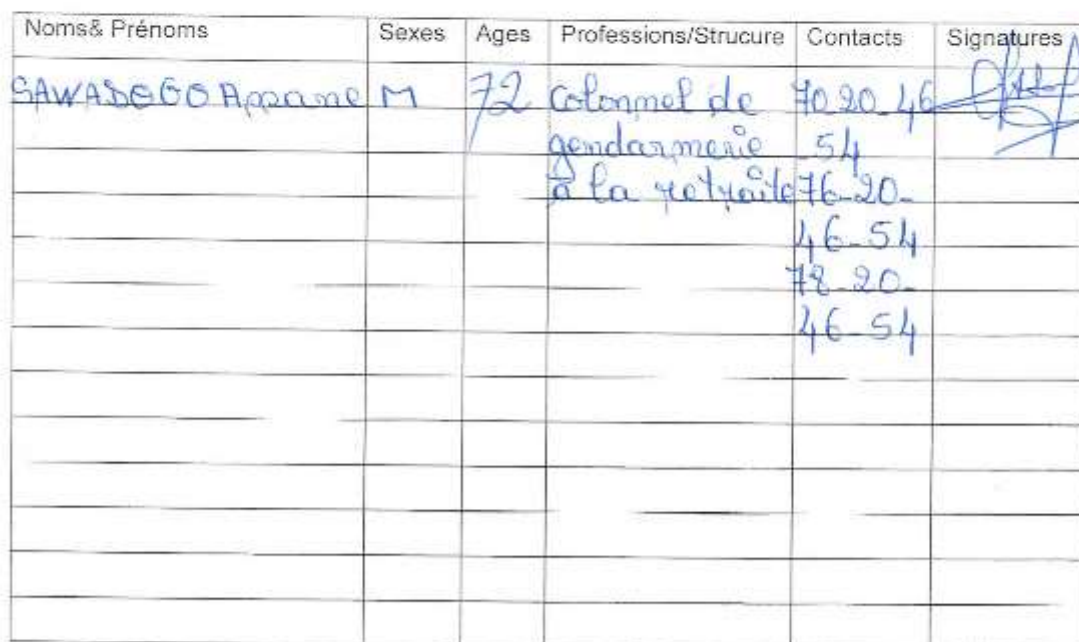 Noms& Prénoms Sexes Ages Professions/Strucure Contacts Signatures
SAWADOGO Appane M 72 Colonmel de 70 20_46
gendarmerie _54
à la retraite 76_20_
46_54
78_20_
46_54